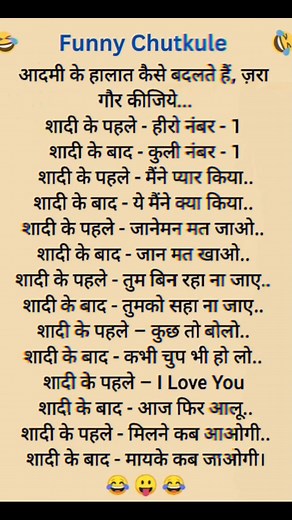 Funny Chutkule
आदमी के हालात कैसे बदलते हैं, ज़रा
गौर कीजिये...
शादी के पहले - हीरो नंबर - 1
शादी के बाद - कुली नंबर - 1
शादी के पहले - मैंने प्यार किया..
शादी के बाद - ये मैंने क्या किया..
शादी के पहले - जानेमन मत जाओ..
शादी के बाद - जान मत खाओ..
शादी के पहले - तुम बिन रहा ना जाए..
शादी के बाद - तुमको सहा ना जाए..
शादी के पहले – कुछ तो बोलो..
शादी के बाद - कभी चुप भी हो लो..
शादी के पहले – I Love You
शादी के बाद - आज फिर आलू..
शादी के पहले - मिलने कब आओगी..
शादी के बाद - मायके कब जाओगी।